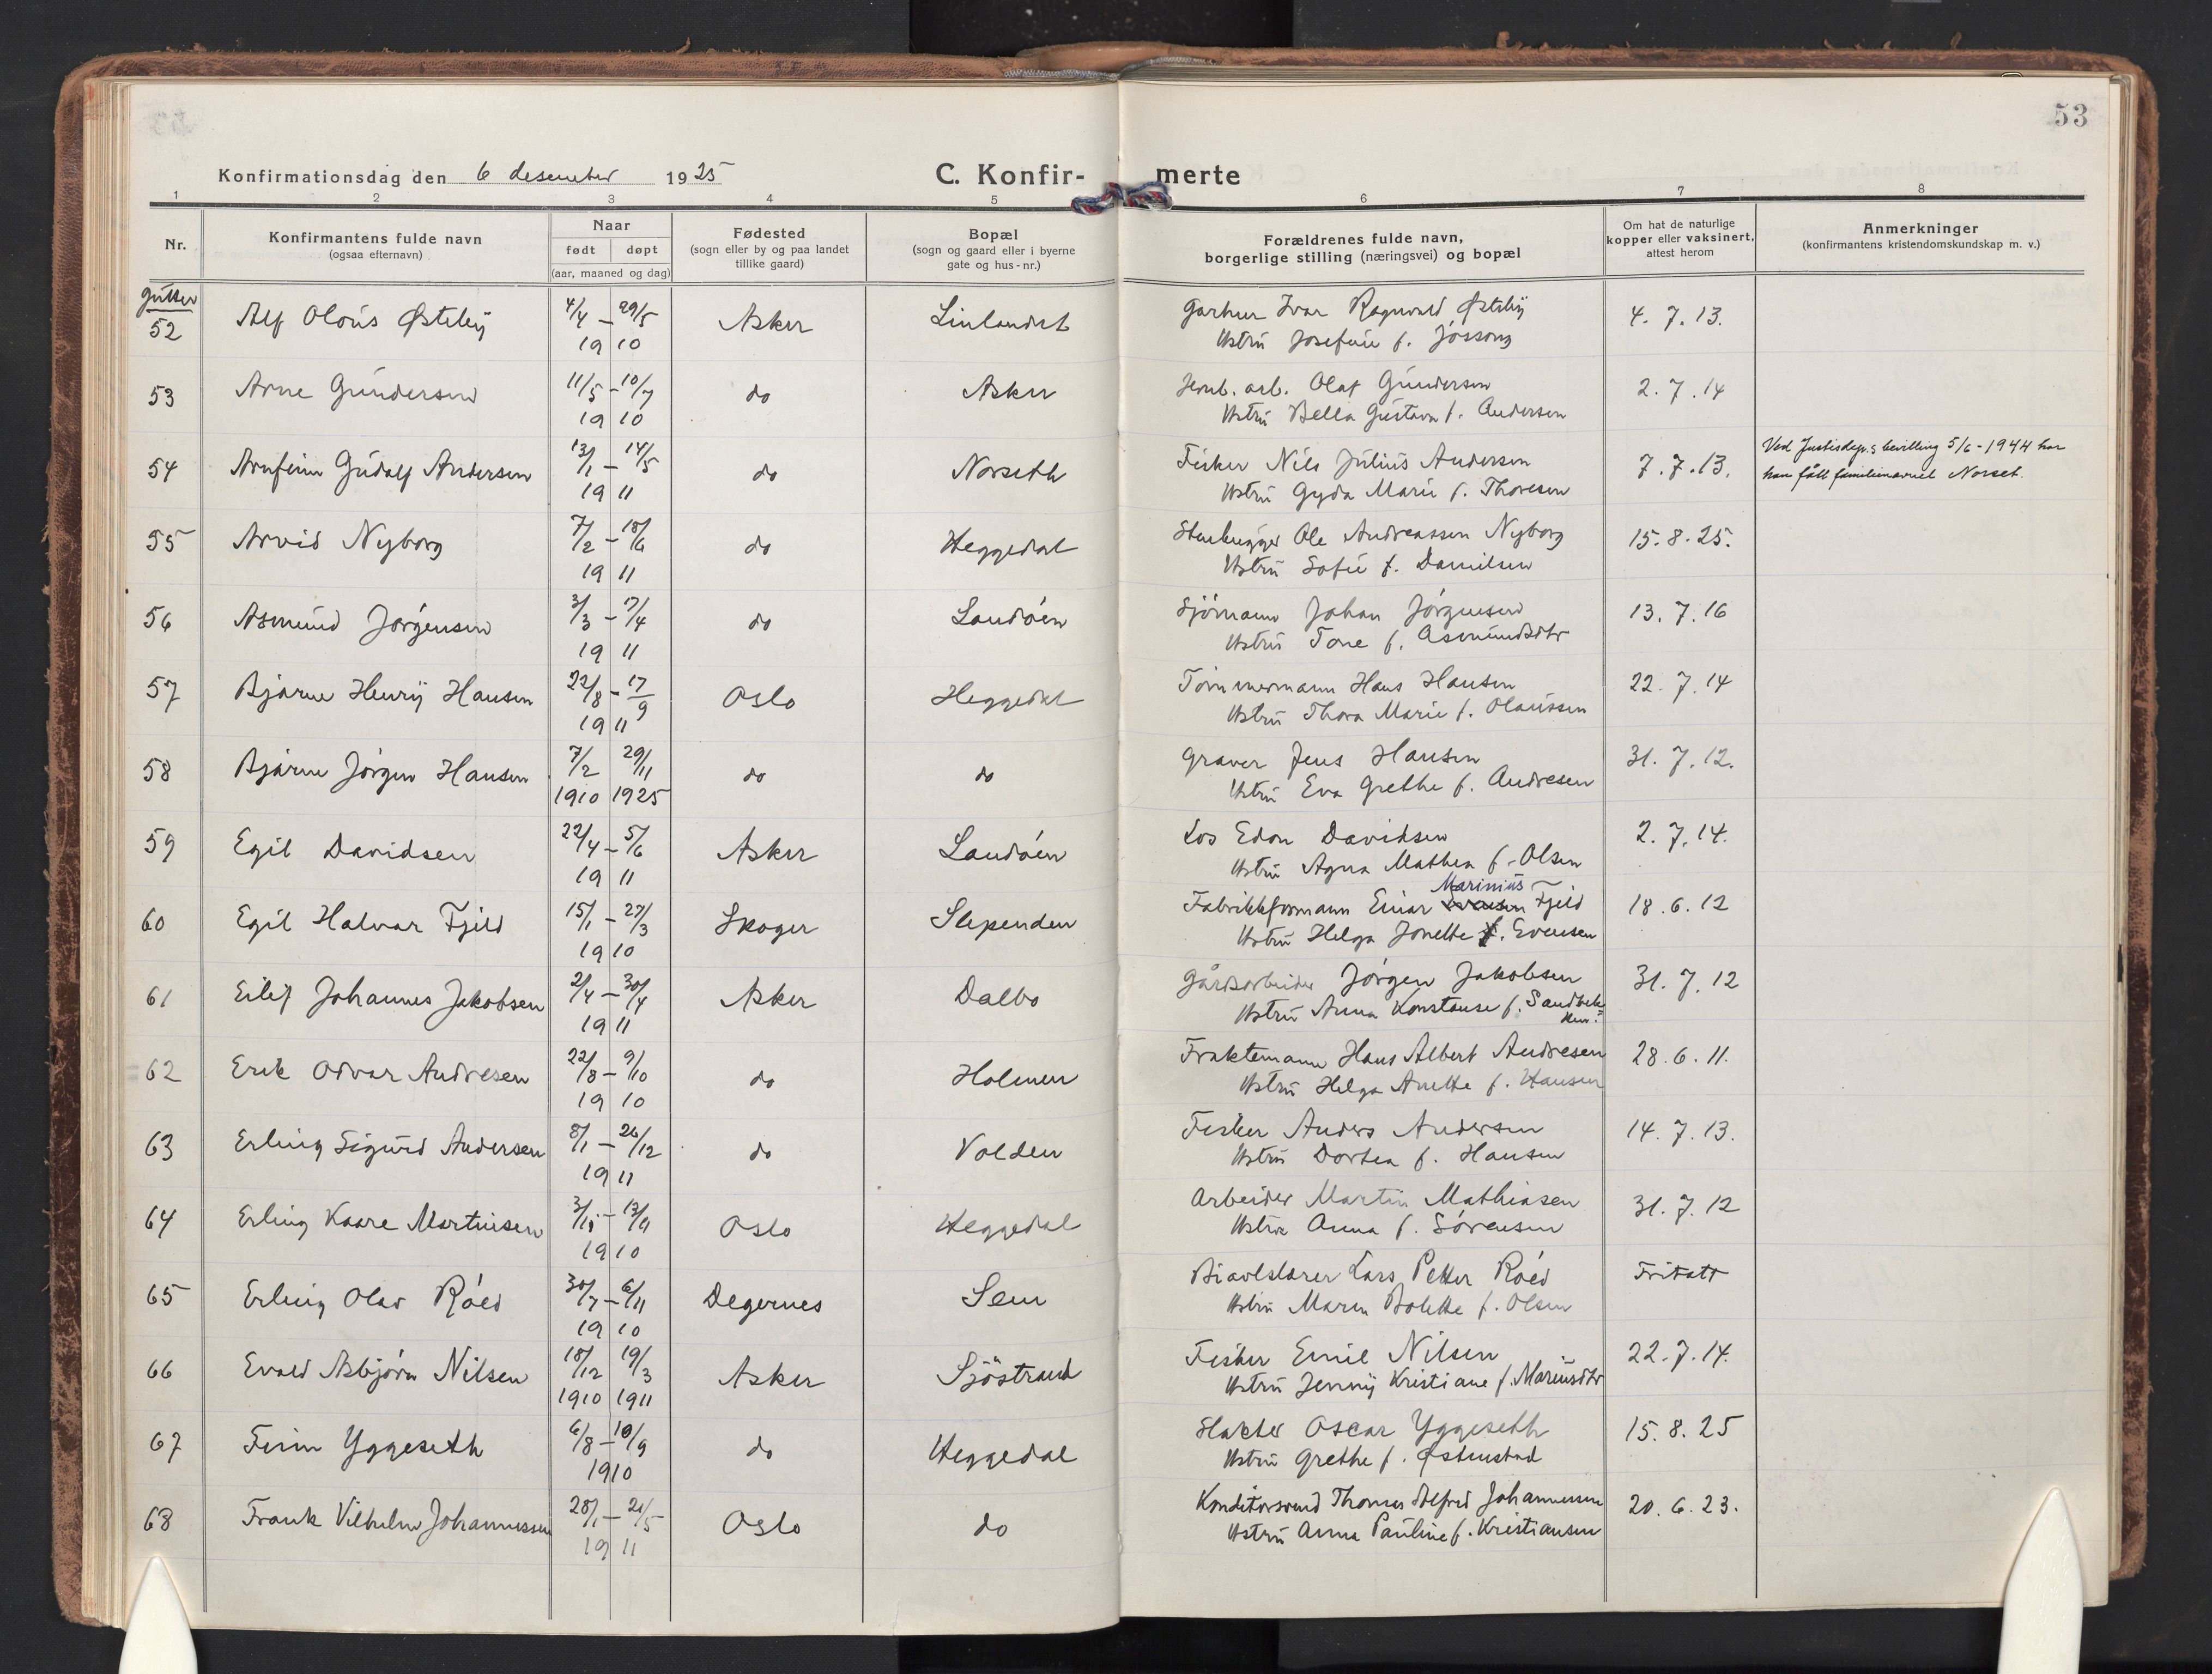 53
Konfirmationsdag den 6 desember 1925
C. Konfir-merte
1 2 3 4 5 6 7 8
Nr.
Konfirmantens fulde navn
(ogsaa efternavn)
Naar
født døpt
(aar, maaned og dag)
Fødested
(sogn eller by og paa landet
tillike gaard)
Bopæl
(sogn og gaard eller i byerne
gate og hus-nr.)
Forældrenes fulde navn,
borgerlige stilling (næringsvei) og bopæl
Om hat de naturlige
kopper eller vaksinert,
attest herom
Anmerkninger
(konfirmantens kristendomskundskap m. v.)
Gutter
52 Alf Olaus Østeby 4/4 – 29/5 Asker Linlandet Garhur Ivar Ragnvald Østeby 4. 7. 13.
19 10 Hstru Josefine f.
53 Arne Gundersen 11/5 – 10/7 do Asker Jernb. arb. Olaf Gundersen 2. 7. 14
19 10 Hstru Bella Gustava f. Andersen
54 Arnfinn Gudolf Andersen 13/1 – 14/5 do Norseth Fisker Nils Julius Andersen 7. 7. 13. Ved Justisdep.s bevilling 5/6 - 1944 har
19 11 Hstru Gyda Marie f. Thoresen han fått familienavnet Norset.
55 Arvid Nyborg 7/2 – 18/6 do Heggedal Stenhugger Ole Andreassen Nyborg 15. 8. 25.
19 11 Hstru Sofie f. Danielsen
56 Asmund Jørgensen 3/3 – 17/4 do Landøen Sjømann Johan Jørgensen 13. 7. 16
19 11 Hstru Tone f. Asmundsdtr
57 Bjarne Henry Hansen 22/8 – 17/9 Oslo Heggedal Tømmermann Hans Hansen 22. 7. 14
19 11 Hstru Thora Marie f. Olaussen
58 Bjarne Jørgen Hansen 7/2 29/11 do do Graver Jens Hansen 31. 7. 12.
1910 1925 Hstru Eva Grethe f. Andresen
59 Egil Davidsen 22/4 – 5/6 Asker Landøen Los Edon Davidsen 2. 7. 14.
19 11 Hstru Agna Mathea f. Olsen
Marinius
60 Egil Halvar Fjeld 15/1 – 27/3 Skoger Slependen Fabrikkformann Einar Fjeld 18. 6. 12
19 10 Hstru Helga Jonette f. Evensen
61 Eilif Johannes Jakobsen 2/4 – 30/4 Asker Dalbo Gårdsarbeider Jørgen Jakobsen 31. 7. 12
19 11 Hstru Anna Konstanse f. Sandbek-
ken.
62 Erik Odvar Andresen 22/8 – 9/10 do Holmen Fraktemann Hans Albert Andresen 28. 6. 11.
19 10 Hstru Helga Anette f. Hansen
63 Erling Sigurd Andersen 8/1 – 26/12 do Volden Fisker Anders Andersen 14. 7. 13.
19 11 Hstru Dortea f. Hansen
64 Erling Kaare Martinsen Oslo Heggedal Arbeider Martin Mathiasen 31. 7. 12
19 10 Hstru Anna f. Sørensen
65 Erling Olav Røed 30/7 – 6/11 Degernes Sem Biavlslærer Lars Petter Røed Fritatt
19 10 Hstru Maren Bolette f. Olsen
66 Evald Asbjørn Nilsen 18/12 19/3 Asker Sjöstrand Fisker Emil Nilsen 22. 7. 14.
1910 1911 Hstru Jenny Kristiane f. Mariusdtr
67 Finn Yggeseth 6/8 – 18/9 do Heggedal Slakter Oscar Yggeseth 15. 8. 25
1910 Hstru Grethe f. Østenstad
68 Frank Vilhelm Johannessen 28/1 – 21/5 Oslo do Konditorsvend Thomas Alfred Johannessen 20. 6. 23.
19 11 Hstru Anna Pauline f. Kristiansen